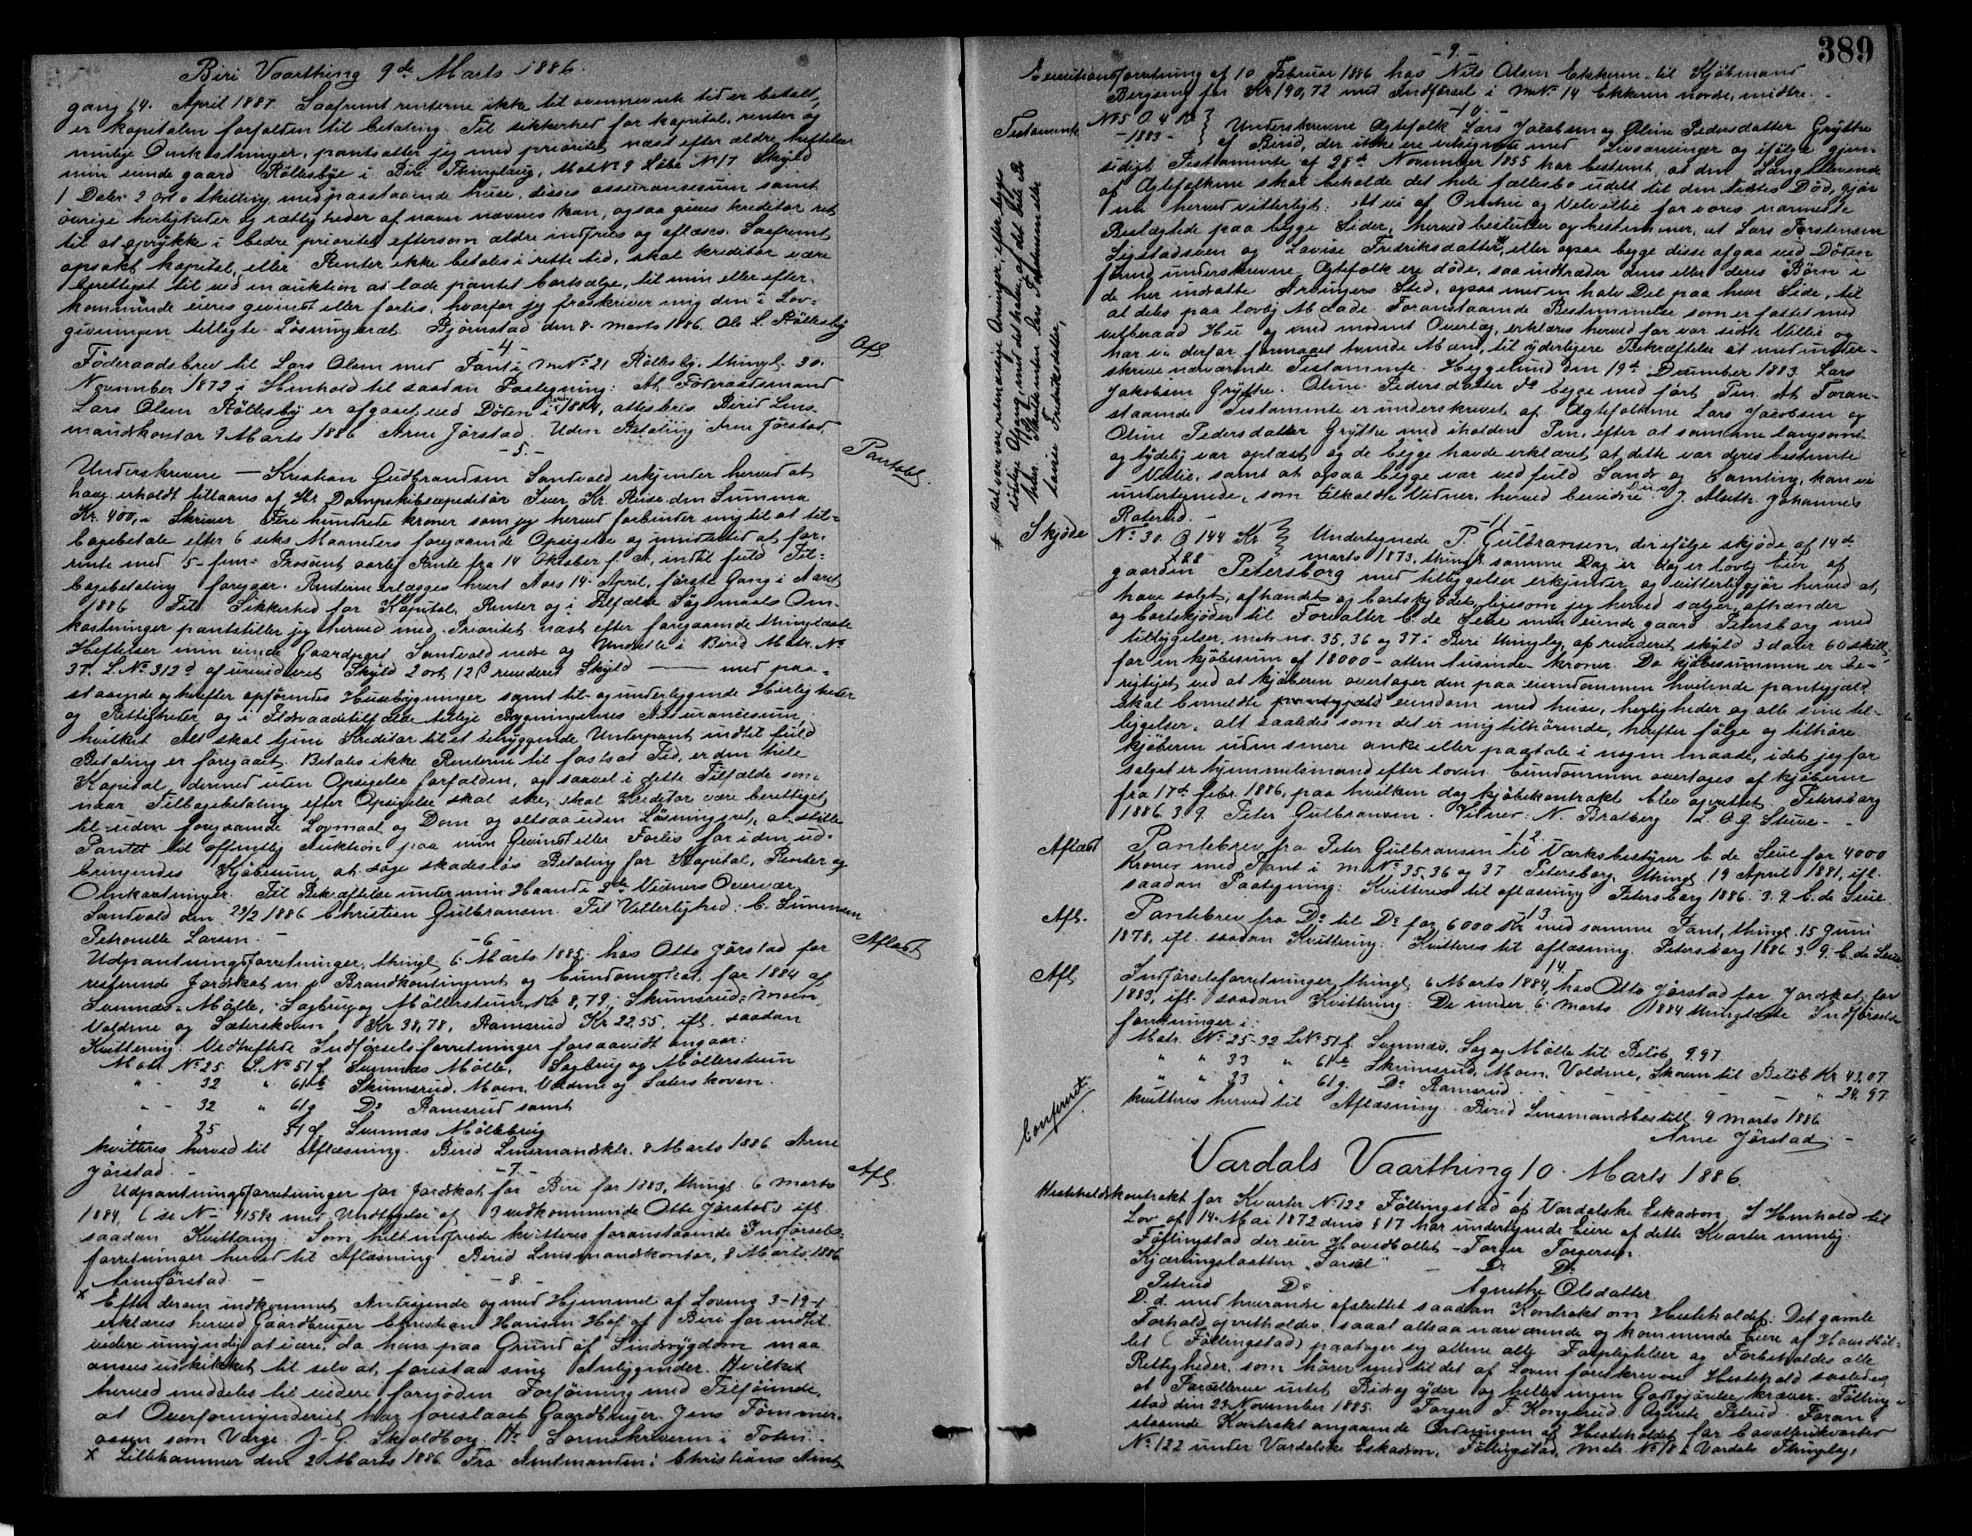 Biri Vaarthing 9de Marts 1886.
gang 14. April 1887. Saafremt renterne ikke til ovennevnte tid er betalt,
er kapitalen forfalden til betaling. Til sikkerhed for kapital, renter og
mulige Omkostninger, pantsætter jeg med prioritet næst efter ældre heftelser
min eiende gaard Röllesbye i Biri Thinglaug, Mat No 9 Löbe No 17 Skyld
1 Daler 2 ort 0 Skilling med paastaaende huse, disses assuransesum samt
övrige herligheder og rettigheder af navn nævnes kan, ogsaa gives kreditor ret
til at oprykke i bedre prioritet eftersom ældre indfries og aflæses. Saafremt
opsakt kapital, eller Renter ikke betales i rette tid, skal kreditor være
berettiget til ved en auktion at lade pantet bortsælge, til min eller efter-
kommende eieres gevinst eller forlis, hvorfor jeg fraskriver mig den i Lov-
givningen tillagte Lösningsret. Bjørnstad den 8. marts 1886. Ole L. Röllesby
-4-
Föderaadsbrev til Lars Olsen med Pant i m No 21 Röllesby, thingl. 30.
November 1872 i Henhold til saadan Paategning: At Föderaadsmand
Lars Olsen Röllesby er afgaaet ved Döden i 1884, attesteres. Birid Lens-
mandskontor 9 Marts 1886 Arne Jörstad. Uden Betaling Arne Jörstad.
Afl.
-5-
Pantobl.
Underskrevne — Kristian Gudbrandsen Sandvold erkjender herved at
have erholdt tillaans af Hr Dampskibsexpeditör Iver Kr. Riise den Summa
Kr. 400,- Skriver Fire hundrede kroner som jeg herved forbinder mig til at til-
bagebetale efter 6 seks Maaneders foregaaende Opsigelse og imidlertid at for-
rente med 5 - fem - Prosent aarlig Rente fra 14 Oktober f. A. indtil fuld Til-
bagebetaling foregaar. Renterne erlægges hvert Aars 14 April, förste Gang i Aaret
1886 Til Sikkerhed for Kapital, Renter og i Tilfælde Sögsmaals Om-
kostninger pantstiller jeg herved med Prioritet næst efter foregaaende thinglæste
Heftelser min eiende Gaardpart Sandvold nedre og i Birid Matr. No
37. L. No 312d af urevideret Skyld 2 ort 12 β revideret Skyld — med paa-
staaende og herefter opförendes Husebygninger samt til- og underliggende Herligheder
og Rettigheder og i Ildsvaadetilfælde tillige Bygningernes Assurancesum,
hvilket Alt skal tjene Kreditor til et betryggende Underpant indtil fuld
Betaling er foregaaet. Betales ikke Renterne til fastsat Tid, er den hele
Kapital dermed uden Opsigelse forfalden, og saavel i dette Tilfælde som
naar Tilbagebetaling efter Opsigelse skal ske, skal Kreditor være berettiget
til uden foregaaende Lovmaal og Dom og altsaa uden Lösningsret, at stille
Pantet til offentlig Auktion paa min Gevinst eller Forlis for i den ud-
bringendes Kjöbesum at söge skadeslös Betaling for Kapital, Renter og
Omkostninger. Til Bekræftelse under min Haand i 2de Vidners Overvær.
Sandvold den 23/2 1886 Christian Gulbransen. Til Vitterlighed: C. Simensen
Petronelle Larsen.
-6-
Aflæst
Udpantningsforretninger, thingl. 6 Marts 1885 hos Otto Jörstad for
resterende Jordskat m. v. Brandkontingent og Eiendomsskat. for 1884 af
Sveenæs- Mölle, Sagbrug og Möllersteen Kr. 8,79, Skumsrud- Moen
Voldene og Sæterskoven Kr 38,78, Ramsrud Kr 22,55. ifl. saadan
Kvittering: Vedheftede Indförselsforretninger forsaavidt angaar:
Matr. No 25 L. No 51 f Sveenæs Mölle, Sagbrug og Möllersteen
" - 32 " 61 b Skumsrud, Moen, Voldene og Sæterskoven.
" - 32 " 61 g Do Ramsrud samt
" 25 51 f Sveenæs Möllebrug
kvitteres herved til Aflæsning. Birid Lensmandsktr. 8 Marts 1886 Arne
Jörstad.
-7-
Afl.
Udpantningsforretninger for Jordskat for Biri for 1883, thingl. 6 marts
1884, (se No 415 k med Undtagelse af 3 vedkommende Otto Jörstad) ifl.
saadan Kvittering: Som helt indfriede kvitteres foranstaaende Indförsels-
forretninger herved til Aflæsning. Birid Lensmandskontor, 8 Marts 1886
Arne Jörstad.
-8-
x Efter derom indkommet Andragende og med Hjemmel af Lovens 3-19-1
erklæres herved Gaardbruger Christian Hansen Hof af Biri for indtil
videre umyndig at være, da han paa Grund af Sindssygdom maa
ansees uskikket til selv at forestaa sine Anliggender. Hvilket
herved meddeles til videre fornöden Forföining med Tilföiende,
at Overformynderiet har foreslaaet Gaardbruger Jens Tömmer-
aasen som Værge. J. G. Skjoldborg. Hr. Sorenskriveren i Toten.
x Lillehammer den 2 Marts 1886 Fra Amtmanden i Christians Amt
389
-9-
Executionsforretning af 10 Februar 1886 hos Nils Olsen Ekkeren til Kjöbmand
Bergseng for Kr 190,72 med Indförsel i m No 14 Ekkeren nordre, midtre.
-10-
Testamente
No 5 O 4 Kr
-1883-
Underskrevne Ægtefolk Lars Jacobsen og Oline Pedersdatter Grytte
af Birid, der ikke ere velsignede med Livsarvinger og ifölge gjen-
sidigt Testamente af 28de November 1855 har bestemt, at den Længstlevende
af Ægtefolkene skal beholde det hele fællesbo udelt til den Sidstes Död, gjör
nu herved vitterligt: At vi af Omhu og Velvillie for vores nærmeste
Beslægtede paa begge Sider, herved beslutter og bestemmer, at Lars Torstensen
Sigstadsveen og Lovise Fredriksdatter x, eller ogsaa begge disse afgaa ved Döden
förend underskrevne Ægtefolk ere döde, saa indtræder deres eller deres Börn i
de her indsatte Arvingers Sted, ogsaa med en halv Del paa hver Side, til
at deles paa lovlig Maade. Foranstaaende Bestemmelse som er fattet med
velberaad Hu og med modent Overlæg, erklæres herved for vor sidste Villie og
har vi derfor formaaet tvende Mænd, til yderligere Bekræftelse at medunder-
skrive nærværende Testamente. Heggelund den 19de December 1883. Lars
Jakobsen Grytte. Oline Pedersdatter Do begge med fört Pen. At Foran-
staaende Testamente er underskrevet af Ægtefolkene Lars Jacobsen og
Oline Pedersdatter Grytte med iholden Pen, efter at samme langsomt
og tydelig var oplæst og de begge havde erklæret, at dette var deres bestemte
Villie, samt at ogsaa begge var ved fuld Sands og Samling, kan vi
undertegnede, som tilkaldte Vidner, herved bevidne. J. Alseth. Johannes
Roterud.
x skal være vore retmæssige Arvinger, efter begges
dödelige Afgang, med det halve af det hele Bo
hver. Skulde enten Lars Torstensen eller
Lovise Fredriksdatter,
-11-
Skjöde
No 30 B 144 Kr
788
Undertegnede P. Gulbransen, der ifölge skjöde af 14de
marts 1873, thinglæst samme Dag er lovlig Eier af
gaarden Petersborg med tilliggelser erkjender og vitterliggjör herved at
have solgt, afhændet og bortskjödet, ligesom jeg herved sælger, afhænder
og bortskjöder til Forvalter C. de Seue min eiende gaard Petersborg med
tilliggelser, matr. no. 35, 36 og 37 i Biri thinglag, af revideret skyld 3 daler 60 skill.
for en kjöbesum af 18000 - atten tusinde - kroner. Da kjöbesummen er be-
rigtiget ved at kjöberen overtager den paa eiendommen hvilende pantegjæld
skal bemeldte eiendom med huse, herligheder og alle sine til-
liggelser, alt saaledes som det er mig tilhörende, herefter fölge og tilhöre
kjöberen uden senere anke eller paatale i nogen maade, idet jeg for
salget er hjemmelsmand efter loven. Eiendommen overtages af kjöberen
fra 17de febr. 1886, paa hvilken dag kjöbekontrakt blev oprettet. Petersborg
1886. 3. 9. Peter Gulbransen. Vidner: N. Bratberg L. O. G. Skiue. -
-12-
Aflæst
Pantebrev fra Peter Gulbransen til Værksbestyrer C. de Seue for 4000
Kroner med Pant i m No 35, 36 og 37 Petersborg, thingl. 19 April 1881, ifl.
saadan Paategning: Kvitteres til aflæsning Petersborg 1886. 3. 9. C. de Seue.
13.
Afl.
Pantebrev fra Do til Do for 6000 Kr med samme Pant, thingl. 15 Juni
1878, ifl. saadan Kvittering: Kvitteres til aflæsning. Petersborg 1886 3. 9. C. de Seue.
14.
Afl.
Indförselsforretninger, thingl. 6 Marts 1884, hos Otto Jörstad for Jordskat for
1883, ifl. saadan Kvittering: De under 6 marts 1884 thinglæste Indförsels-
forretninger i:
Matr. No 25-32 L No 51 f. Sveenæs, Sag og Mölle til Belöb 9.97
" " 33 " 61 b Skumsrud, Moen, Voldene, Skoven til Belöb Kr 43,07
" " 33 " 61 g. Do Ramsrud " 24.97
kvitteres herved til Aflæsning. Birid Lensmandsbestill. 9 marts 1886
Arne Jörstad. -
Confereret
Vardals Vaarthing 10. Marts 1886.
1
Hesteholdskontrakt for Kvarter No 122 Föllingstad af Vardalske Eskadron. I Henhold til
Lov af 14. Mai 1872 dens § 17 har undertegnede Eiere af dette Kvarter nemlig:
Föllingstad der eier Hovedbollet - Torger Torgersen.
Kjærringslaatten, Parcel — Do Do
Petrud Do Agnethe Olsdatter
D. d. med hverandre afsluttet saadan Kontrakt om Hesteholdet: Det gamle
Forhold opretholdes, saaat altsaa nærværende og kommende Eiere af Hovedböl-
let (Föllingstad) paatager sig allene alle Forpligtelser og Forbeholdes alle
Rettigheder, som hörer med til det af Loven foreskrevne Hestehold saaledes
at Parcellerne intet Bidrag yder og heller ingen Godtgjörelse kræver. Fölling-
stad den 23 November 1885. Torger T. Kongerud. Agnete Petrud. Foran-
staaende Kontrakt angaaende Ordningen af Hesteholdet for Cavallerikvarter
No 122 under Vardalske Eskadron, Föllingstad, Matr. No 18 i Vardals Thinglag,